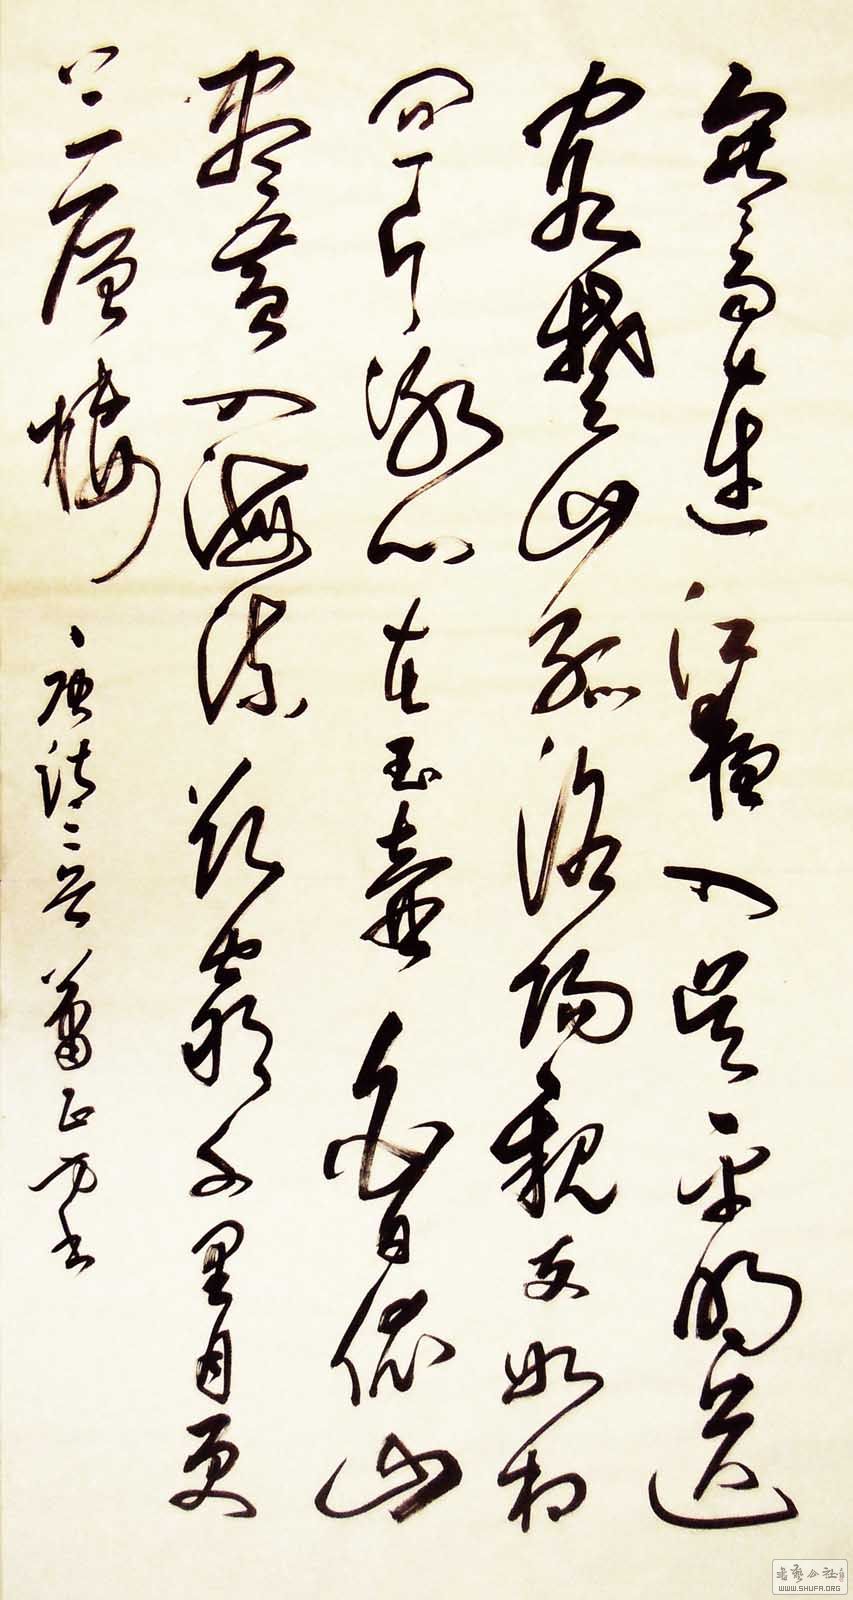 雨連江入吳平明送
客楚山孤洛陽親友如相
問一片冰心在玉壺白日依山
盡黃入海流欲窮千里目更
上一層樓
唐詩二首 蕭正方書
書藝公社
WWW.SHUFA.ORG